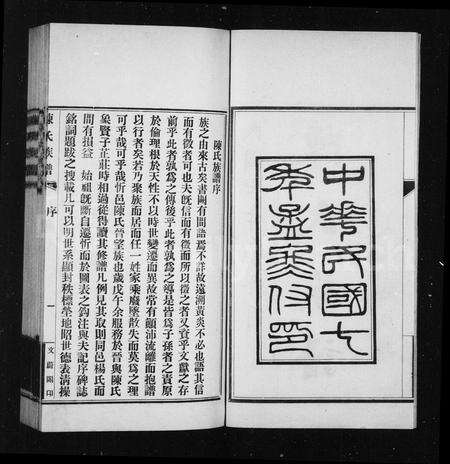 中華民國七
年孟夏付印
陳氏族譜序
族之由來古矣書闕有間語焉不詳故遠溯黃炎不必也其信
而有徵者可也夫旣信而有徵而所以徵之者又實乎文獻之存
前乎此者孰爲之傳後乎此者孰爲之導是皆爲子孫者之責原
於倫理根於天性不以時世變遷而異故常有顚沛流離而抱譜
以行者矣若乃聚族而居而任一姓家乘廢墜散失而莫爲之理
可乎哉可乎哉忻邑陳氏晉望族也歲戊午余服務於晉與陳氏
象賢子芷莊時相過從得讀其修譜凡例見其取則同邑楊氏而
間有損益　始祖旣斷自遷忻而於圖表之鈎注與夫記序碑誌
銘詞題跋之搜載凡可以明世系顯封秩標塋地昭世德表淸操
陳氏族譜　序　一　文蔚閣印